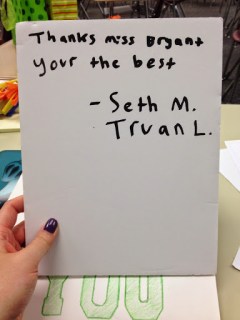 Thanks miss Bryant
your the best
- Seth M.
Truan L.
YOU